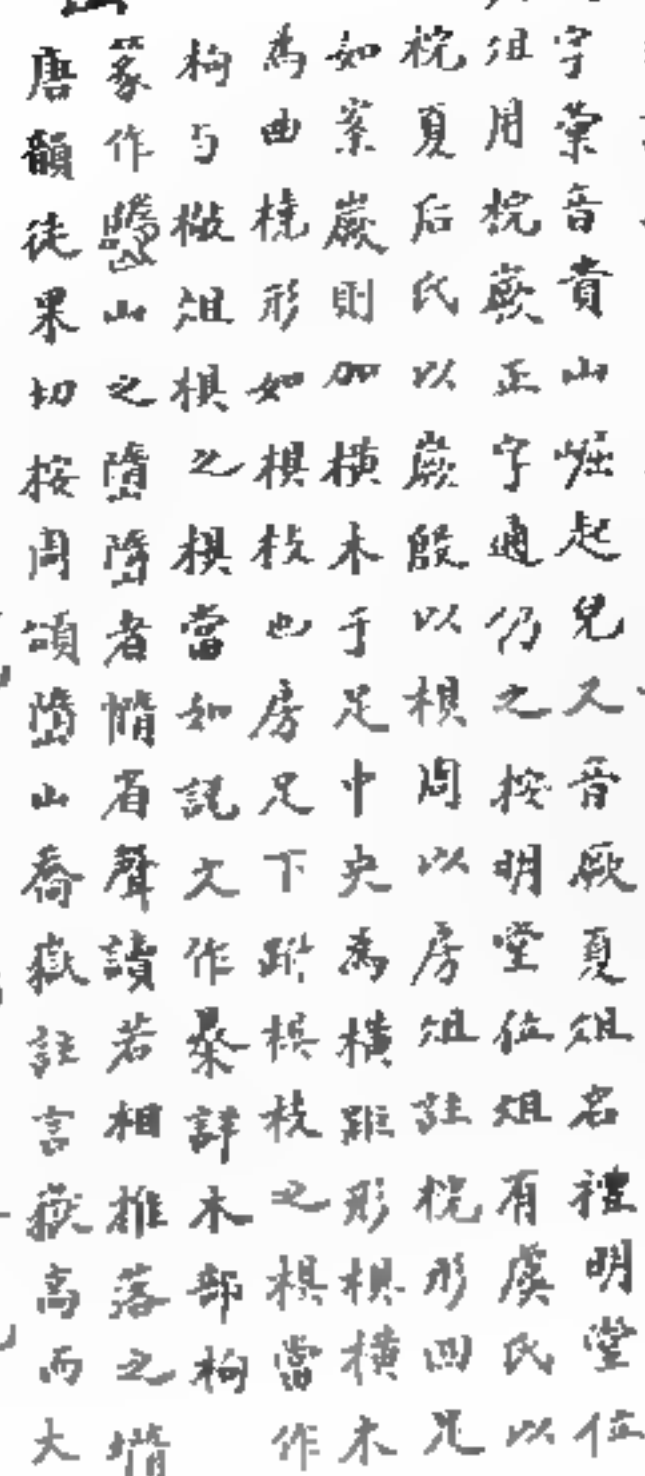 字彙音貴山崛起皃又音厥夏俎名禮明堂位
俎用梡嶡正字通仍之按明堂位俎有虞氏以
梡夏后氏以嶡殷以椇周以房俎註梡形四足
如案嶡則加橫木于足中央為橫距形椇橫木
為曲橈形如椇枝也房足下跗椇枝之椇當作
枸与棷俎椇之椇當如説文作𣐀詳木部枸
篆作山之嶞嶞者惰省聲讀若相推落之墮
唐韻徒果切按周頌嶞山喬嶽註言嶽高而大